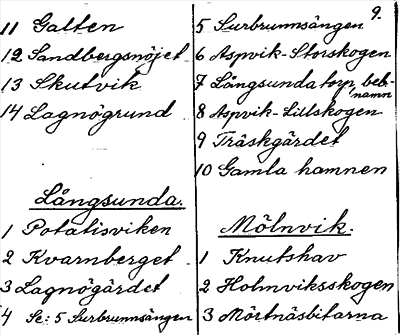 11 Galten
12 Sandbergsnöjet
13 Skutvik
14 Lagnögrund
Långsunda.
1 Potatisviken
2 Kvarnberget
3 Lagnögärdet
4 Se: 5 Surbrunnsängen
9.
5 Surbrunnsängen
6 Aspvik-Storskogen
7 Långsunda torp, beb-
namn
8 Aspvik-Lillskogen
9 Träskgärdet
10 Gamla hamnen
Mölnvik.
1 Knutshav
2 Holmviksskogen
3 Mörtnäsbitarna